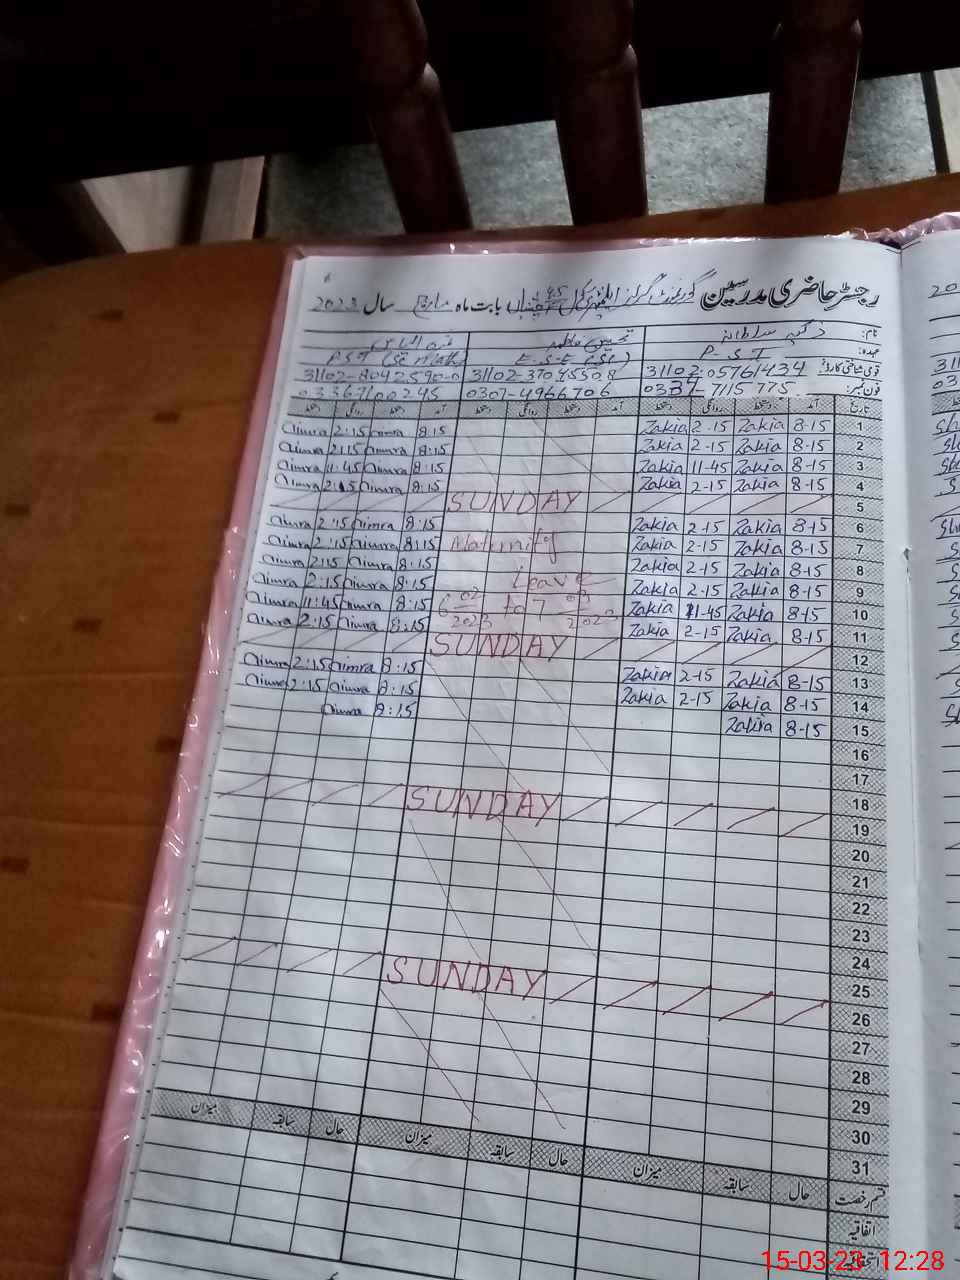 رجسٹر حاضری مدرسین گورنمنٹ گرلز ایلیمنٹری سکول بابت ماہ مارچ سال 2023
نام: ذکیہ سلطانہ
عہدہ: P-ST E.S.E (Sci) P.S.T (Sc Math)
قومی شناختی کارڈ: 31102-05761434 31102-37045508 31102-8042590-0
فون نمبر: 0334-7115775 0307-4966706 03367100245
تاریخ آمد دستخط روانگی دستخط آمد دستخط روانگی دستخط آمد دستخط روانگی دستخط
1 8-15 Zakia 2-15 Zakia 8:15 Aimra 2:15 Aimra
2 8-15 Zakia 2-15 Zakia 8:15 Aimra 2:15 Aimra
3 8-15 Zakia 11-45 Zakia 8:15 Aimra 11:45 Aimra
4 8-15 Zakia 2-15 Zakia 8:15 Aimra 2:15 Aimra
5 SUNDAY
6 8-15 Zakia 2-15 Zakia 8:15 Aimra 2:15 Aimra
7 8-15 Zakia 2-15 Zakia Maternity 8:15 Aimra 2:15 Aimra
8 8-15 Zakia 2-15 Zakia Leave 8:15 Aimra 2:15 Aimra
9 8-15 Zakia 2-15 Zakia 6 02 2023 to 7 05 2023 8:15 Aimra 2:15 Aimra
10 8-15 Zakia 11-45 Zakia 8:15 Aimra 11:45 Aimra
11 8-15 Zakia 2-15 Zakia 8:15 Aimra 2:15 Aimra
12 SUNDAY
13 8-15 Zakia 2-15 Zakia 8:15 Aimra 2:15 Aimra
14 8-15 Zakia 2-15 Zakia 8:15 Aimra 2:15 Aimra
15 8-15 Zakia 8:15 Aimra
16
17
18
19 SUNDAY
20
21
22
23
24
25
26 SUNDAY
27
28
29
30
31
قسم رخصت حال سابقہ میزان حال سابقہ میزان حال سابقہ میزان
اتفاقیہ
15-03-23 12:28